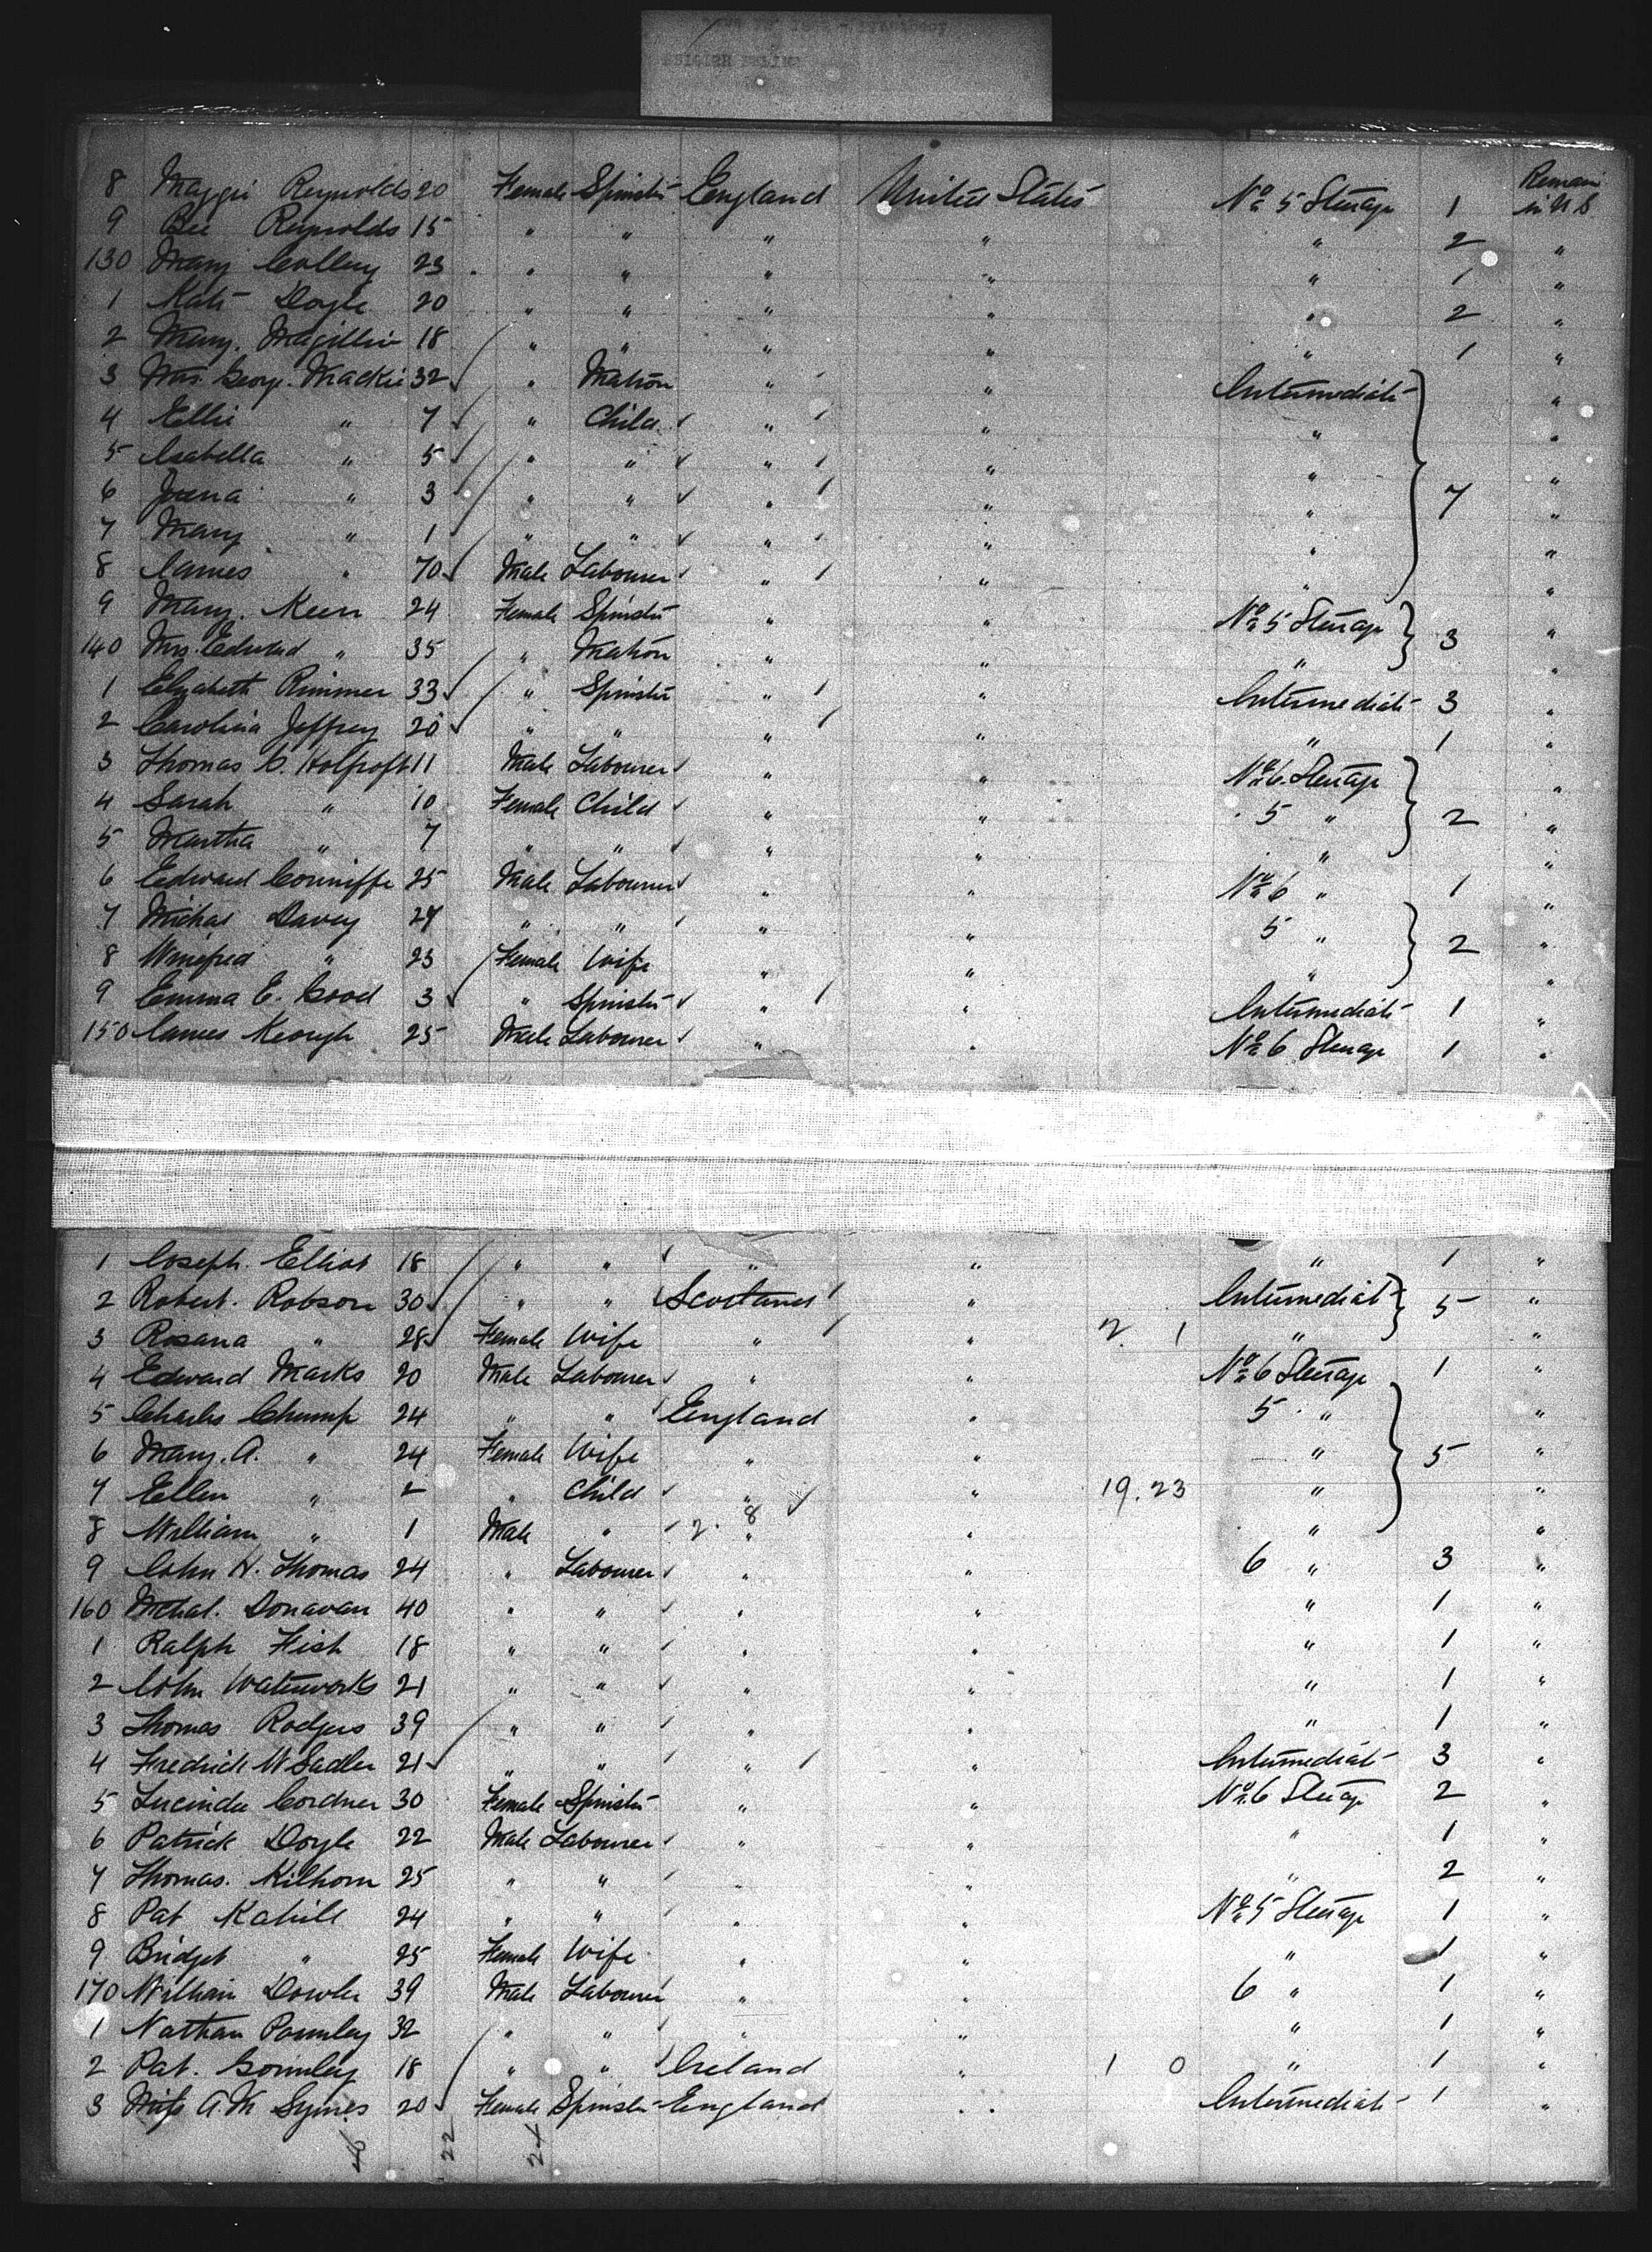 8 Maggie Reynolds 20 Female Spinster England United States No 5 Steerage 1 Remain in U.S
9 Bee Reynolds 15 " " " " " 2 "
130 Mary Collery 23 " " " " " 1 "
1 Kate Doyle 20 " " " " " 2 "
2 Mary 18 " " " " " 1 "
3 Mrs. George Mackie 32 " Matron " " Intermediate "
4 Ellie " 7 " Child " " " "
5 Isabella " 5 " " " " " "
6 " 3 " " " " " 7 "
7 Mary " 1 " " " " " "
8 James " 70 Male Labourer " " " "
9 Mary Keen 24 Female Spinster " " No 5 Steerage 3 "
140 Mrs. Edward " 35 " Matron " " " "
1 Elizabeth Rimmer 33 " Spinster " " Intermediate 3 "
2 Carolina Jeffrey 20 " " " " " 1 "
3 Thomas 11 Male Labourer " " No 6 Steerage "
4 Sarah " 10 Female Child " " 5 " 2 "
5 Martha " 7 " " " " " "
6 Edward Conniffe 25 Male Labourer " " No 6 " 1 "
7 Michal Davey 27 " " " " 5 " 2 "
8 Winefred " 23 Female Wife " " " "
9 Emma E. Good 3 " Spinster " " Intermediate 1 "
150 James Keough 25 Male Labourer " " No 6 Steerage 1 "
1 Joseph Elliot 18 " " " " " 1 "
2 Robert Robson 30 " " Scotland " Intermediate 5 "
3 Rosana " 28 Female Wife " " 2. 1 " "
4 Edward Marks 20 Male Labourer " " No 6 Steerage 1 "
5 Charles Chump 24 " " England " 5 " "
6 Mary. A. " 24 Female Wife " " " 5 "
7 Ellen " 2 " Child " " 19.23 " "
8 William " 1 Male " 2. 8 " " " "
9 John H. Thomas 24 " Labourer " " 6 " 3 "
160 Michal. Donavan 40 " " " " " 1 "
1 Ralph Fish 18 " " " " " 1 "
2 John Waterworks 21 " " " " " 1 "
3 Thomas Rodgers 39 " " " " " 1 "
4 Fredrick W Sadler 21 " " " " Intermediate 3 "
5 Lucinda Cordner 30 Female Spinster " " No 6 Steerage 2 "
6 Patrick Doyle 22 Male Labourer " " " 1 "
7 Thomas. Kilhorn 25 " " " " " 2 "
8 Pat Kahill 24 " " " " No 5 Steerage 1 "
9 Bridget " 25 Female Wife " " " 1 "
170 William Dowler 39 Male Labourer " " 6 " 1 "
1 Nathan 32 " " " " " 1 "
2 Pat. Gormley 18 " " Ireland " 1 0 " 1 "
3 Miss A. M Symes 20 Female Spinster England " Intermediate 1 "
22 24